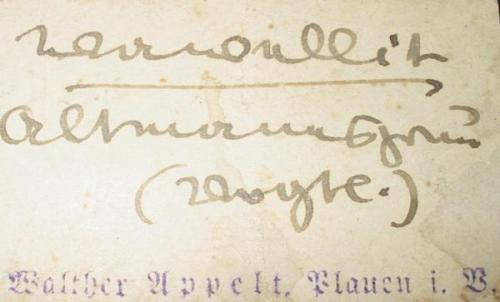 Wavellit
Altmannsgrün
(Vogtl.)
Walther Appelt, Plauen i. V.